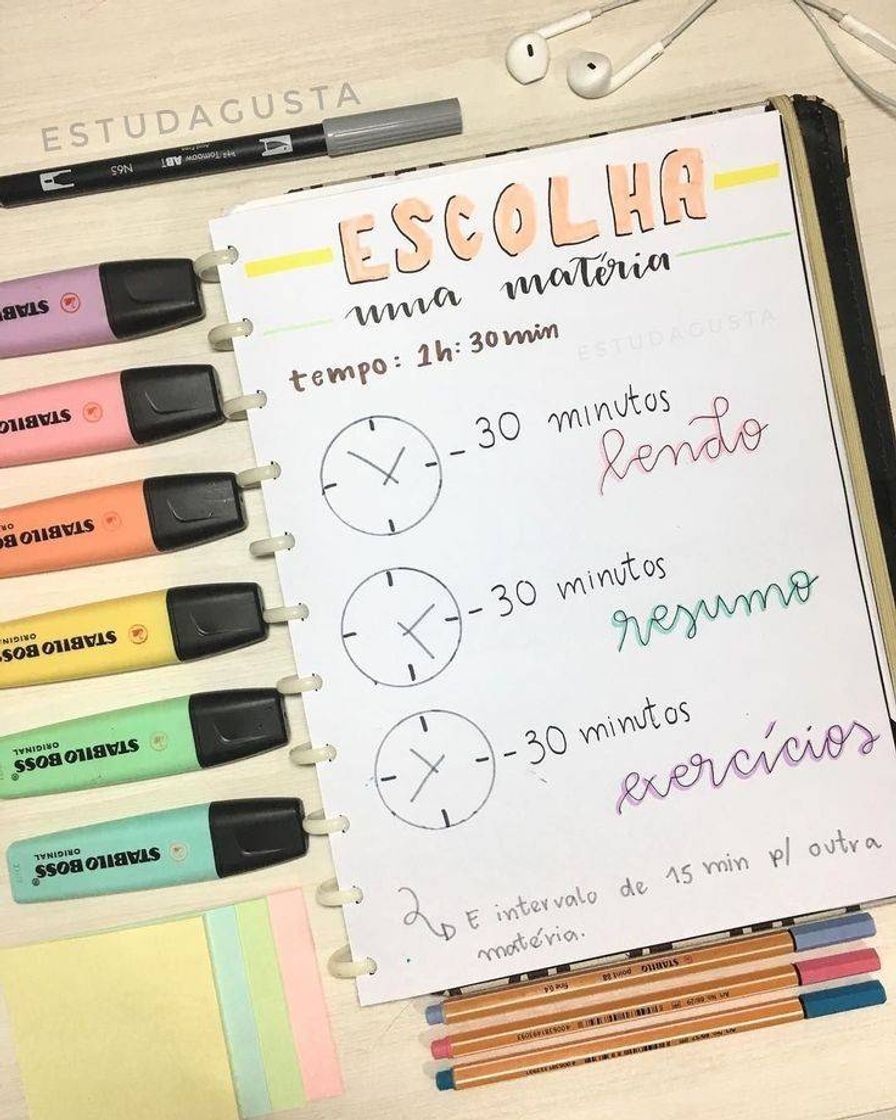 ESTUDAGUSTA
N65 Tombow ABT
ESCOLHA
uma matéria
tempo: 1h:30min
ESTUDAGUSTA
- 30 minutos
lendo
- 30 minutos
resumo
- 30 minutos
exercícios
E intervalo de 15 min p/ outra
matéria.
STABILO
STABILO
STABILO
STABILO BOSS
ORIGINAL
STABILO BOSS
ORIGINAL
STABILO BOSS
ORIGINAL
STABILO point 88 fine 0.4